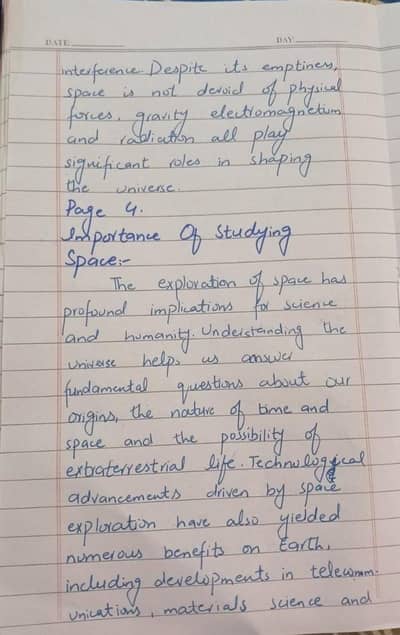 DATE DAY
interference. Despite its emptiness,
space is not devoid of physical
forces, gravity electromagnetism
and radiation all play
significant roles in shaping
the universe.
Page 4.
Importance Of Studying
Space:-
The exploration of space has
profound implications for science
and humanity. Understanding the
universe helps us answer
fundamental questions about our
origins, the nature of time and
space and the possibility of
extraterrestrial life. Technological
advancements driven by space
exploration have also yielded
numerous benefits on Earth,
including developments in telecomm-
unications, materials science and